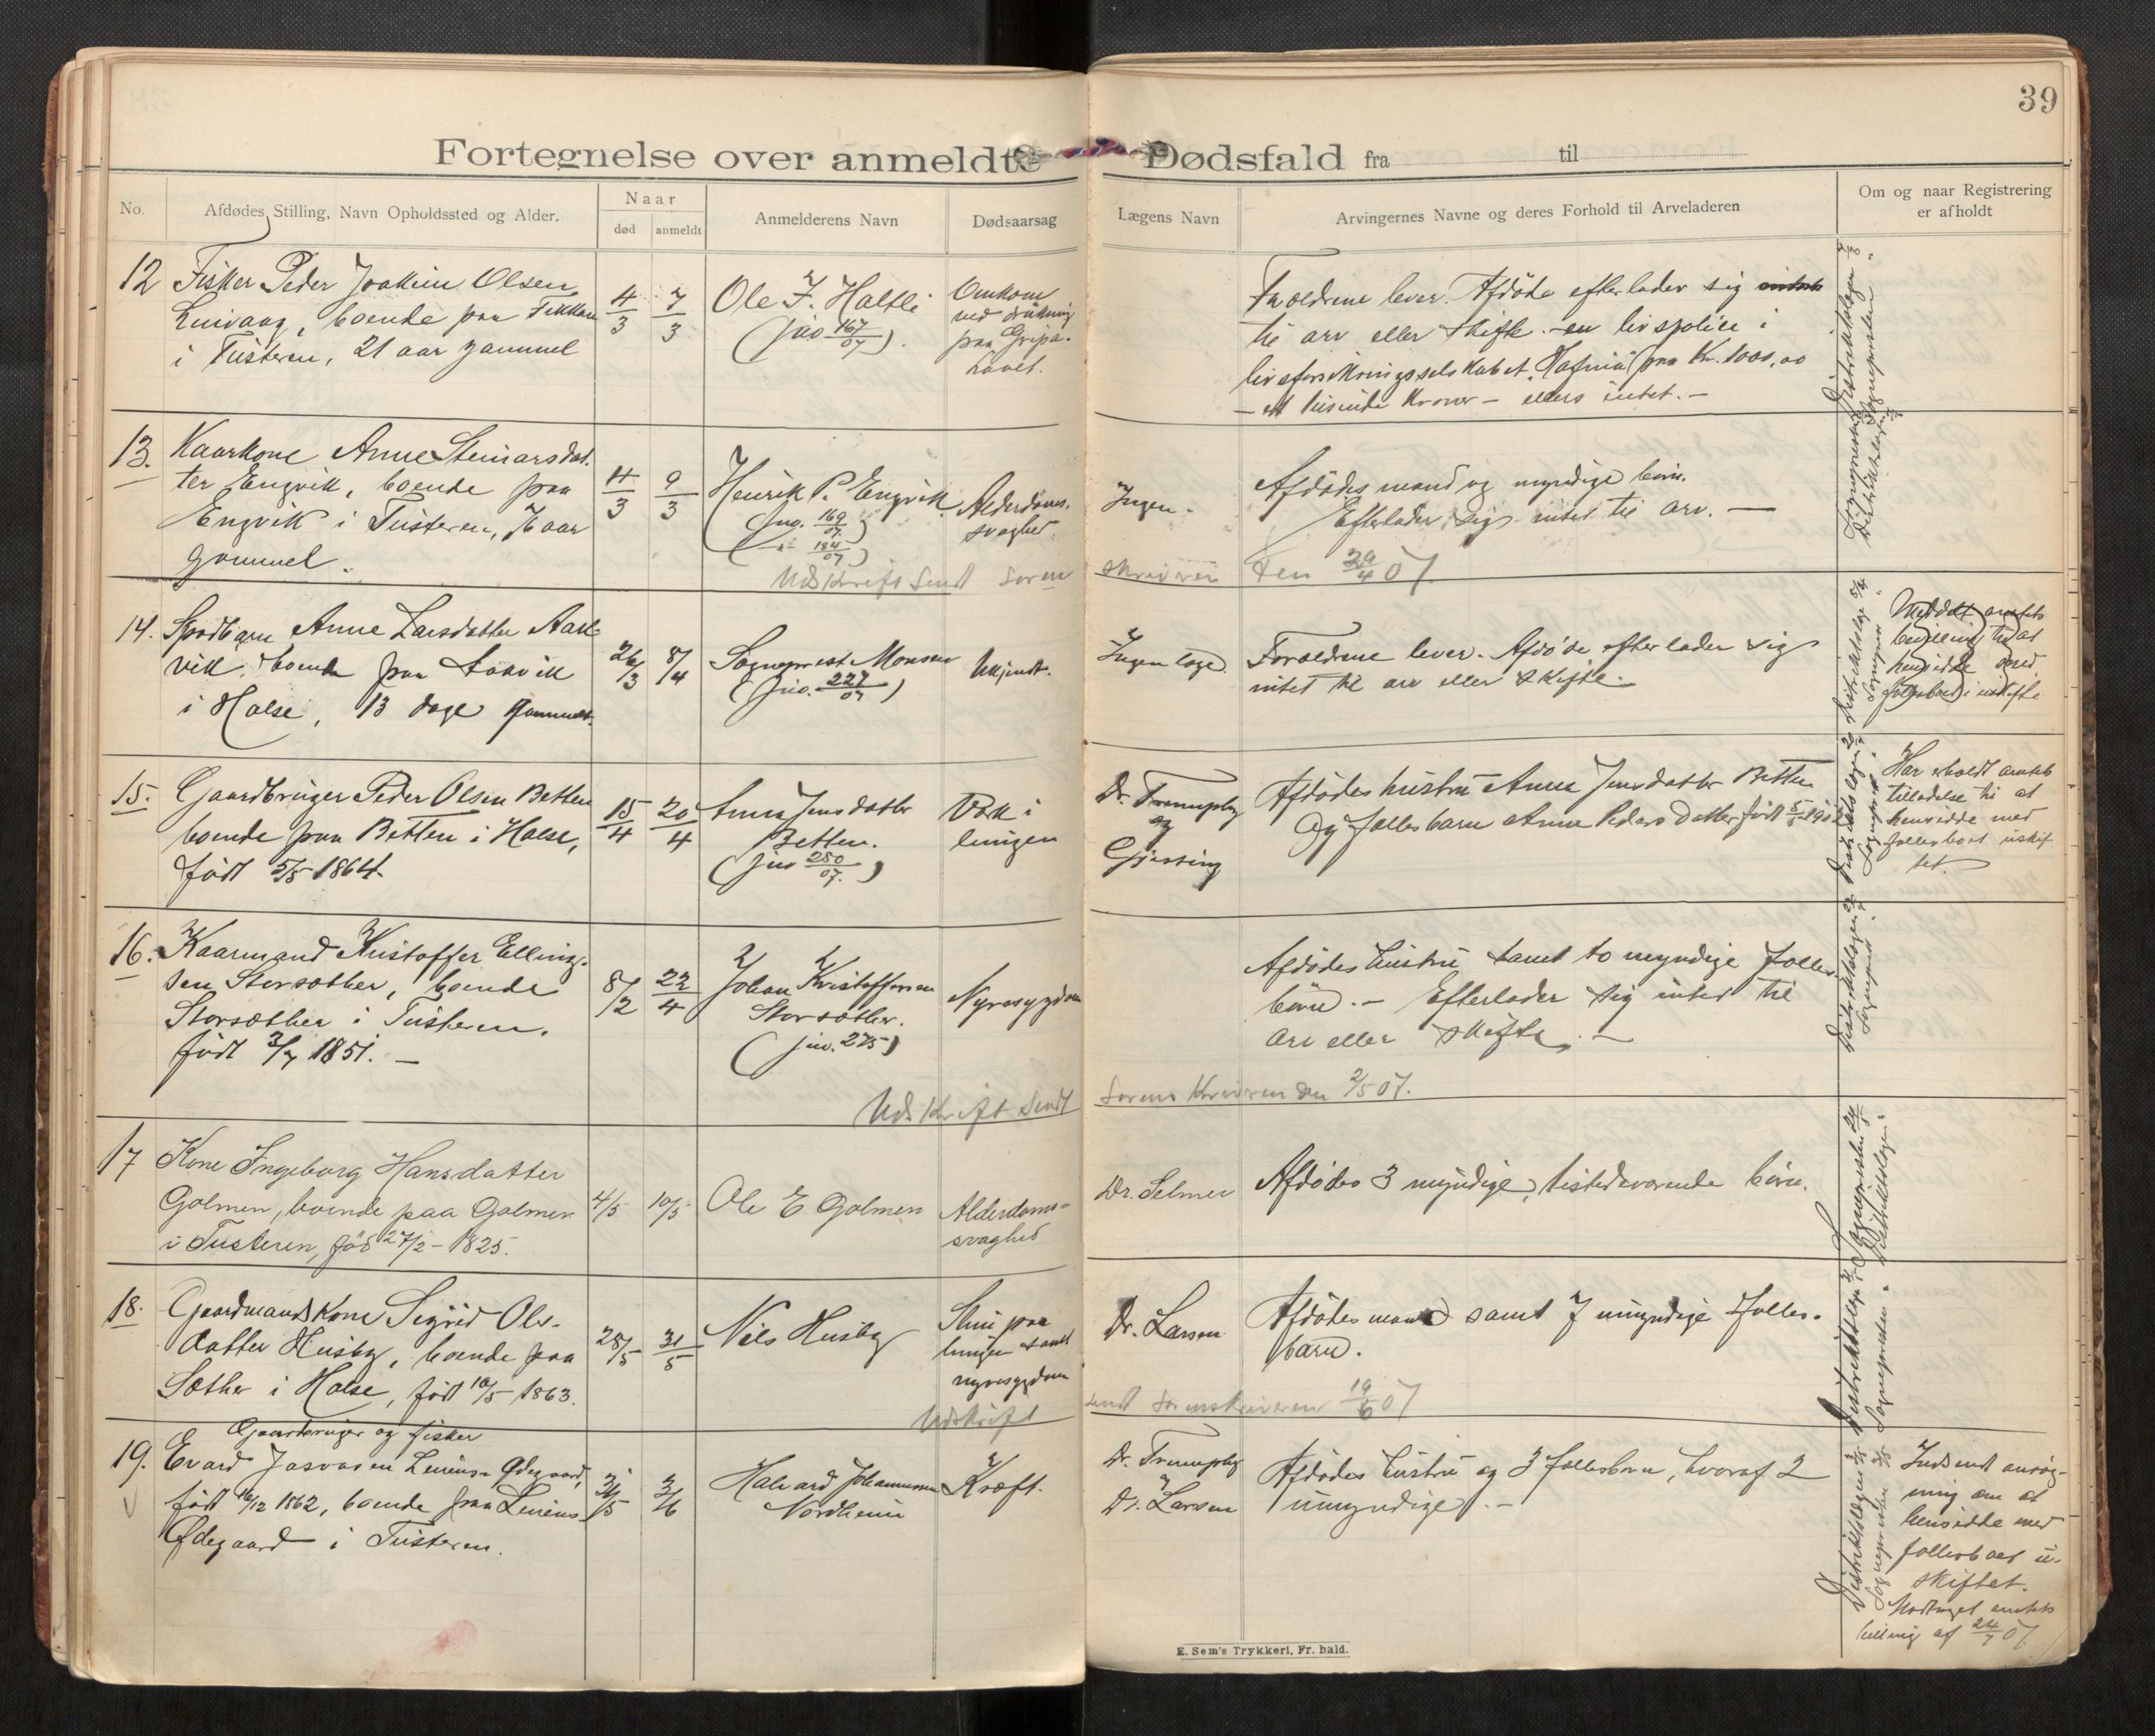 39
Fortegnelse over anmeldte Dødsfald fra til
No.
Afdødes Stilling, Navn Opholdssted og Alder.
Naar
død
anmeldt
Anmelderens Navn
Dødsaarsag
Lægens Navn
Arvingernes Navne og deres Forhold til Arveladeren
Om og naar Registrering
er afholdt
12 Fisker Peder Joakim Olsen
boende paa
i Tusteren, 21 aar gammel
4/3
7/3
Ole J. Haltli
(jno 167/07).
Omkom
ved drukning
paa Gripa-
havet.
Forældrene lever. Afdøde efterlader sig
til arv eller skifte - en livspolice i
livsforsikringsselskabet "Hafnia" paa Kr. 1000,00
- et tusinde Kroner - ellers intet. -
13. Kaarkone Anne Steinarsdat-
ter Engvik, boende paa
Engvik i Tusteren, 76 aar
gammel.
4/3
9/3
Henrik P. Engvik
(jno. 169/07)
184/07)
Alderdoms-
svaghed.
Ingen.
Afdødes mand og myndige børn.
Efterlader sig intet til arv. -
Udskrift sendt soren
skriveren den 29/4 07
14. Spædbarn Anne Larsdatter Aas-
vik, boende paa Aasvik
i Halse, 13 dage gammel.
26/3
8/4
Sogneprest Monsen
(jno. 227/07)
Ukjendt.
Ingen læge.
Forældrene lever. Afdøde efterlader sig
intet til arv eller skifte.
15. Gaardbruger Peder Olsen Betten
boende paa Betten i Halse,
født 5/5 1864.
15/4
20/4
Anne Jensdatter
Betten.
(jno 250/07.)
Værk i
lungen
Dr.
og
Gjessing
Afdødes hustru Anne Jensdatter Betten
og fællesbarn Anne Pedersdatter født
Har erholdt amtets
tilladelse til at
hensidde med
fællesboet uskif-
tet.
16. Kaarmand Kristoffer Elling-
sen Storsæther, boende
Storsæther i Tusteren,
født 2/7 1851. -
8/2
22/4
Johan Kristoffersen
Storsæther.
(jno. 275)
Nyresygdom
Afdødes hustru samt to myndige fælles-
børn. - Efterlader sig intet til
arv eller skifte. -
Udskrift sendt
Sorenskriveren den 2/5 07.
17 Kone Ingeborg Hansdatter
Golmen, boende paa Golmen
i Tusteren, fød 27/2 - 1825.
4/5
10/5
Ole E Golmen
Alderdoms-
svaghed
Dr. Selmer
Afdødes 3 myndige, tilstedeværende børn.
18. Gaardmandskone Sigrid Ols-
datter Husby, boende paa
Sæther i Halse, født 10/5 1863.
28/5
31/5
Nils Husby
Slim paa
lungen samt
nyresygdom
Dr. Larsen
Afdødes mand samt 7 umyndige fælles-
barn.
Udskrift
sendt sorenskriveren 19/6 07
Gaardbruger og fisker
19. Evard
født 16/12 1862, boende paa
Ødegaard i Tusteren.
31/5
3/6
Halvard Johannesen
Nordheim
Kræft.
Dr.
Dr. Larsen
Afdødes hustru og 3 fællesbørn, hvoraf 2
umyndige. -
Indsendt ansøg-
ning om at
hensidde med
fællesboet u-
skiftet.
Modtaget amtets
af 24/7 07
E. Sem's Trykkeri, Fr. hald.